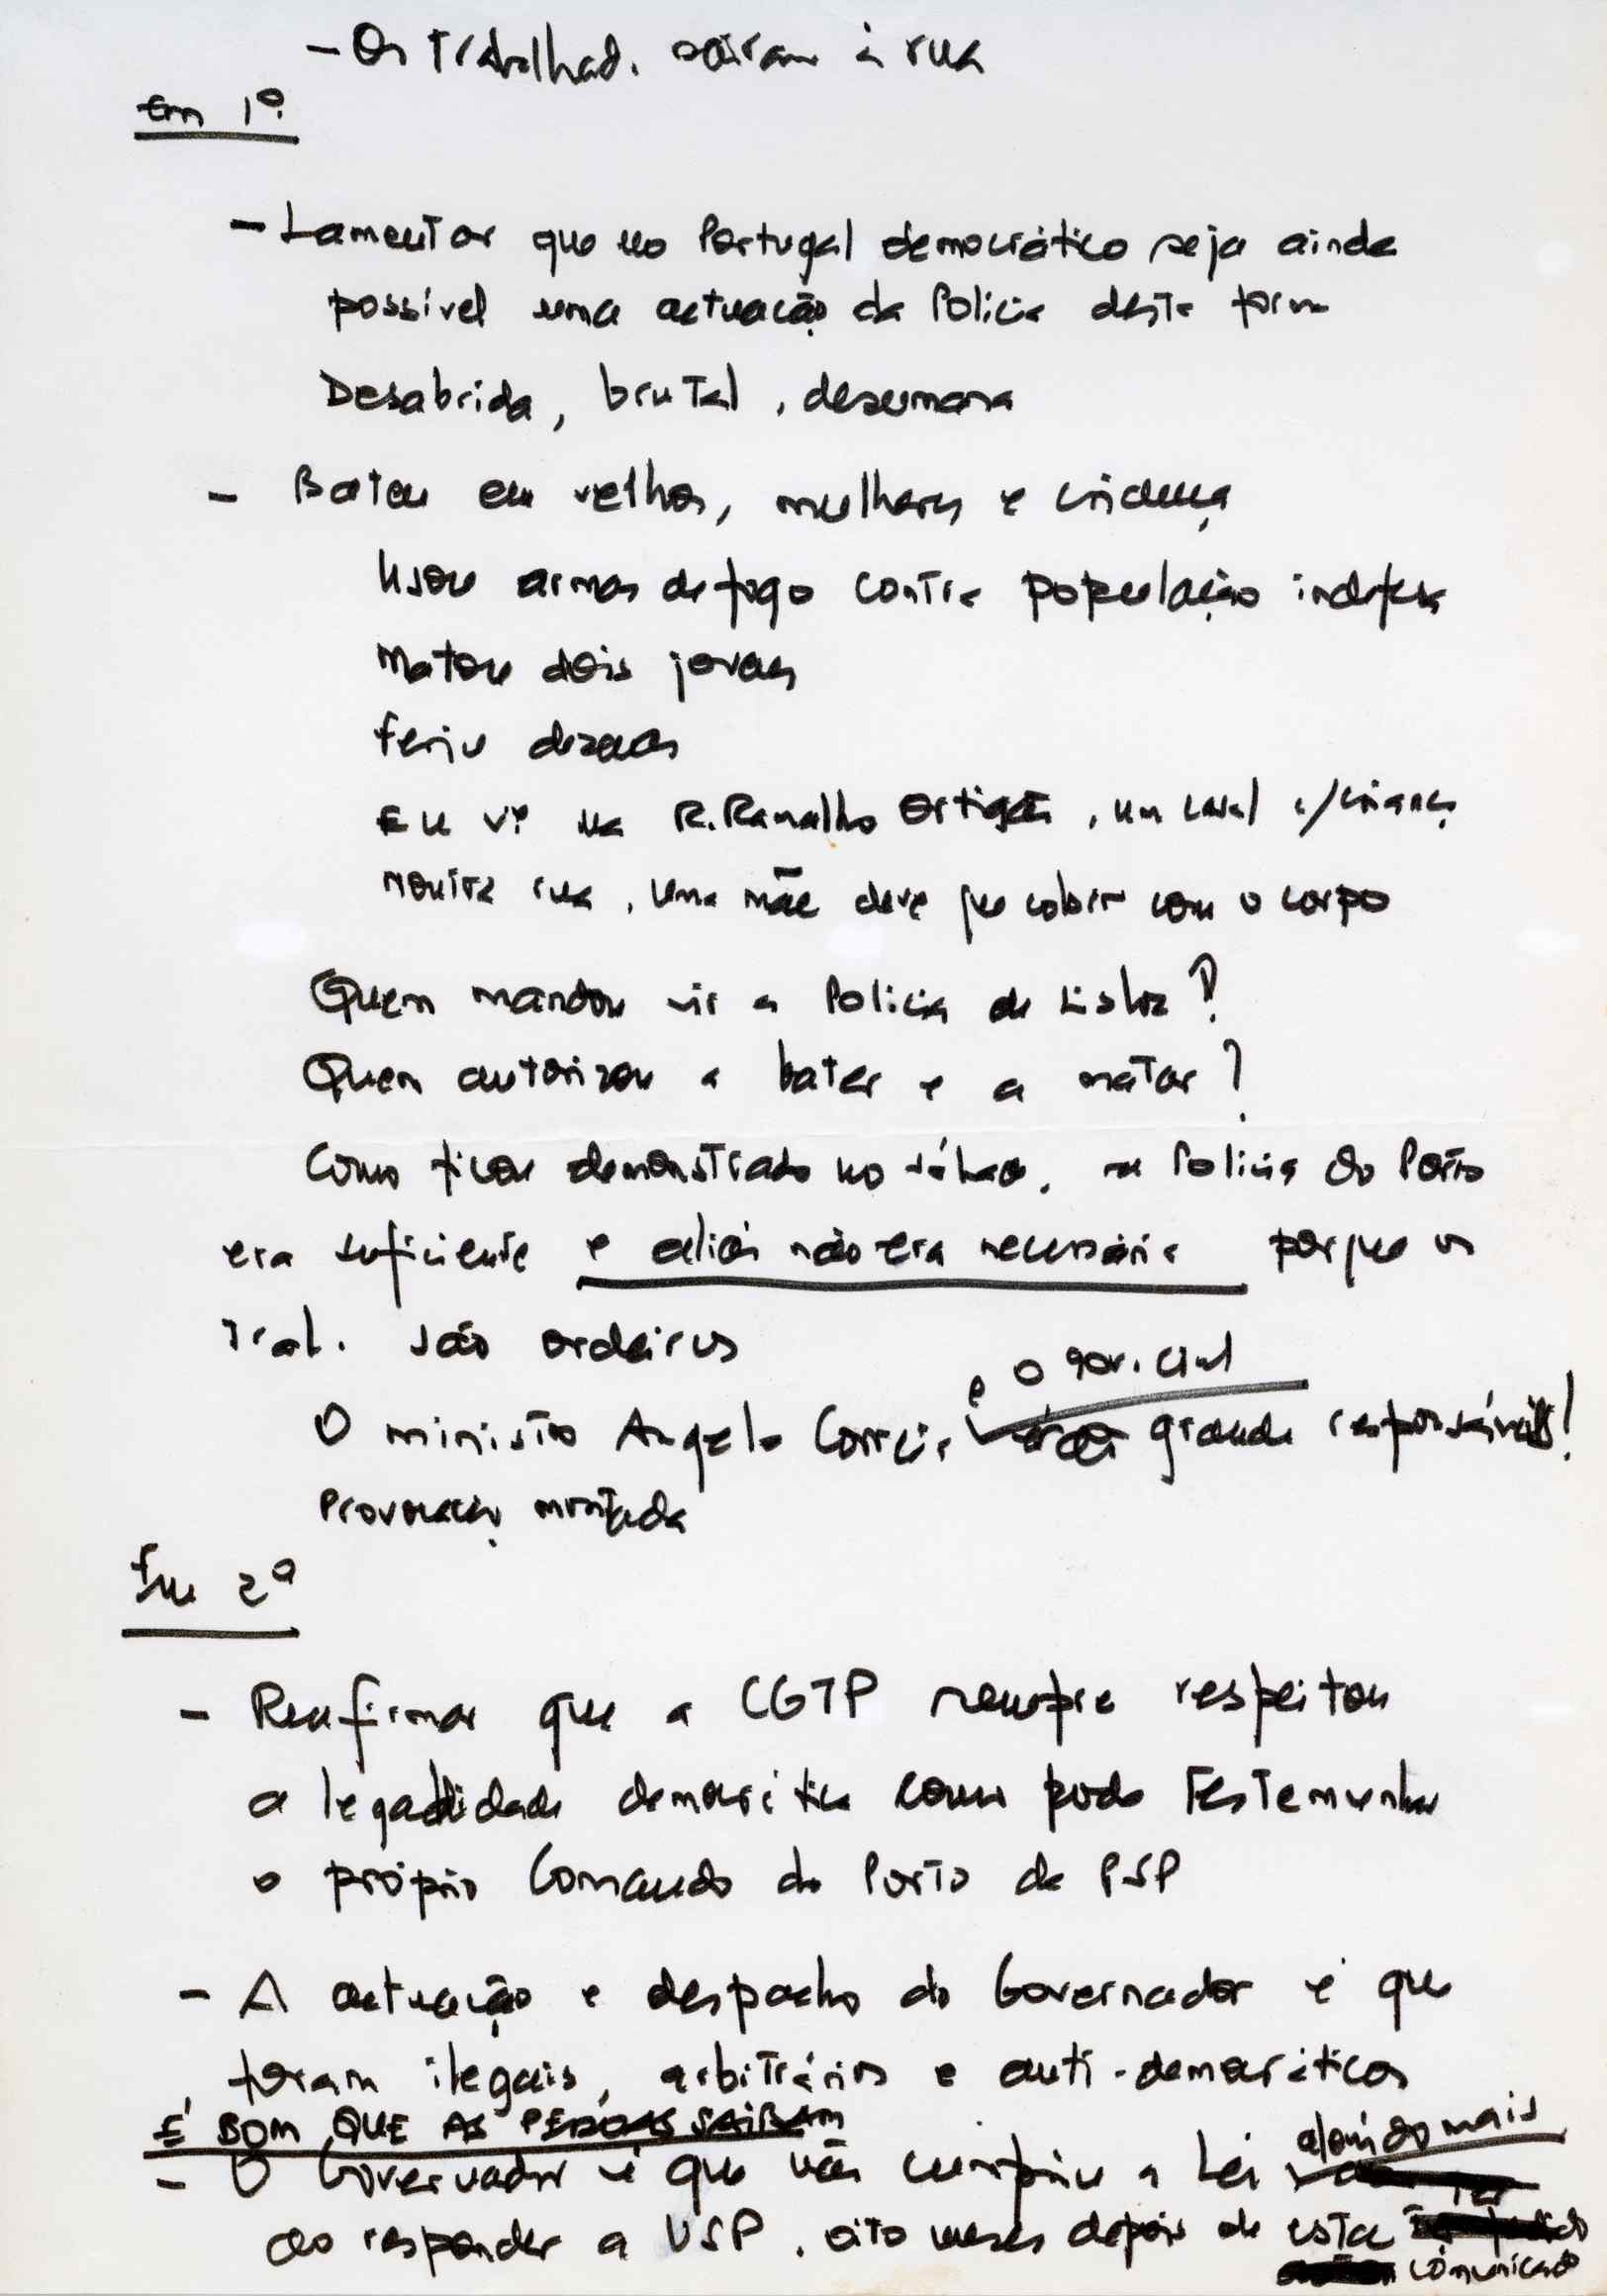 - Os Trabalhad. saíram à rua
Em 1º
- Lamentar que no Portugal democrático seja ainda
possível uma actuação da Policia desta forma
Desabrida, brutal, desumana
- Bateu em velhos, mulheres e criança
Usou armas de fogo contra população indefesa
Matou dois jovens
feriu dezenas
Eu vi na R. Ramalho Ortigão, um casal c/criança
noutra rua, uma mãe teve que cobrir com o corpo
Quem mandou vir a Policia de Lisboa?
Quem autorizou a bater e a matar?
Como ficou demonstrado no sábado, a Policia do Porto
era suficiente e aliás não era necessária porque os
Trab. são ordeiros
e o gov. civil
O ministro Angelo Correia grande responsáveis!
Provocação montada
Em 2º
- Reafirmar que a CGTP sempre respeitou
a legalidade democrática como pode Testemunhar
o próprio Comando do Porto da PSP
- A actuação e despacho do Governador é que
foram ilegais, arbitrários e anti-democráticos
É BOM QUE AS PESSOAS SAIBAM
- O Governador é que não cumpriu a Lei além do mais
ao responder a USP, oito meses depois de esta Ter
comunicado